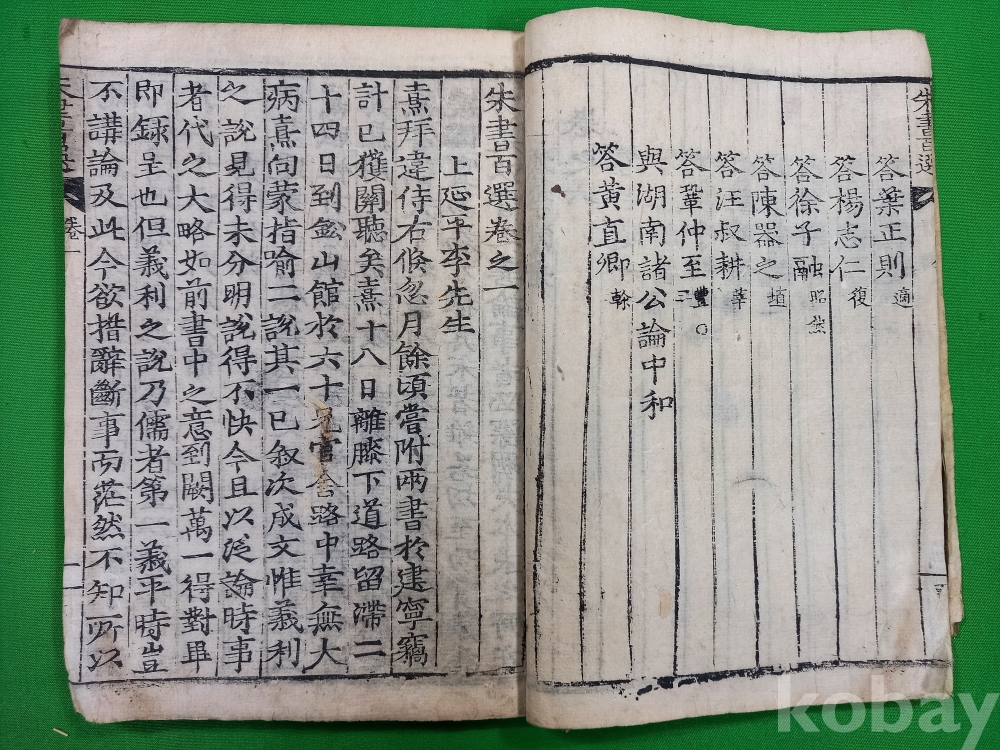 朱書百選
答葉正則適
答楊志仁復
答徐子融昭然
答陳器之埴
答汪叔耕莘
答鞏仲至豐○三
與湖南諸公論中和
答黃直卿榦
朱書百選卷之一
上延平李先生
熹拜違侍右倏忽月餘頃嘗附兩書於建寧竊
計已獲關聽矣熹十八日離膝下道路留滯二
十四日到鈆山館於六十兄官舍路中幸無大
病熹向蒙指喻二說其一已叙次成文惟義利
之說見得未分明說得不快今且以泛論時事
者代之大略如前書中之意到闕萬一得對畢
即録呈也但義利之說乃儒者第一義平時豈
不講論及此今欲措辭斷事而茫然不知所以
朱書百選
卷一
一
kobay